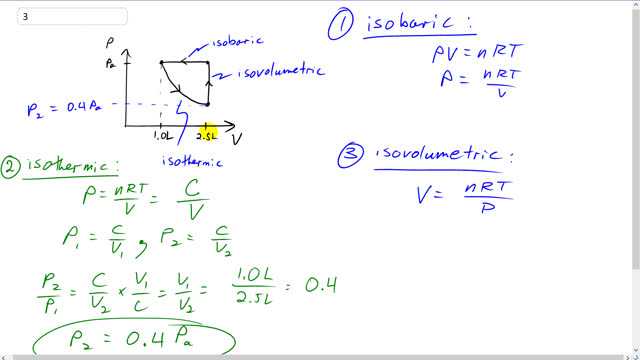 3
P
P₂
P₂ = 0.4 Pₐ
isobaric
isovolumetric
1.0L
2.5L
V
isothermic
① isobaric :
PV = nRT
P = nRT/V
② isothermic :
P = nRT/V = C/V
P₁ = C/V₁ , P₂ = C/V₂
P₂/P₁ = C/V₂ × V₁/C = V₁/V₂ = 1.0L/2.5L = 0.4
P₂ = 0.4 Pₐ
③ isovolumetric :
V = nRT/P